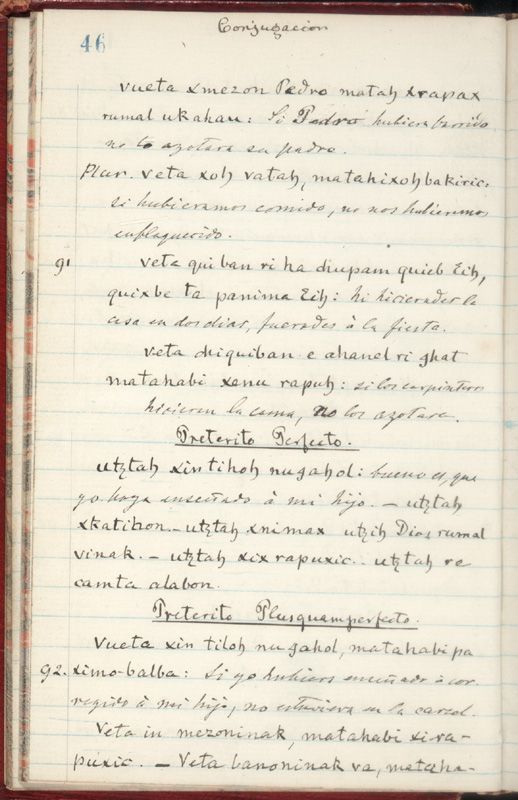 Conjugacion
46
vueta xmezon Pedro matah xrapax
rumal ukahau: Si Pedro hubiera barrido
no lo azotara su padre.
Plur. veta xoh vatah, matahixoh bakiric:
si hubieramos comido, no nos hubieramos
enflaquecido.
91 veta qui ban ri ha chupam quieb Eih,
quixbe ta panima Eih: hi hicierades la
casa en dos dias, fuerades à la fiesta.
veta chiquiban e ahanel ri ghat
matahabi xenu rapuh: si los carpinteros
hicieren la cama, no los azotare.
Preterito Perfecto.
utztah xin tihoh nu gahol: bueno es, que
yo haya enseñado à mi hijo. – utztah
xkatihon. – utztah xnimax utzih Dios rumal
vinak. – utztah xix rapuxic. utztah xe
camta alabon.
Preterito Plusquamperfecto.
Vueta xin tiloh nu gahol, matahabi pa
92. ximo-balba: Si yo hubiera enseñado à cor-
regido à mi hijo, no estuviera en la carcel.
Veta in mezoninak, matahabi xira-
puxic. – Veta banoninak va, mataha-